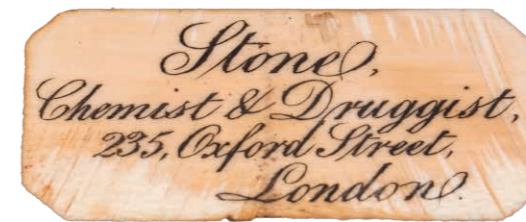 Stone,
Chemist & Druggist,
235, Oxford Street,
London.